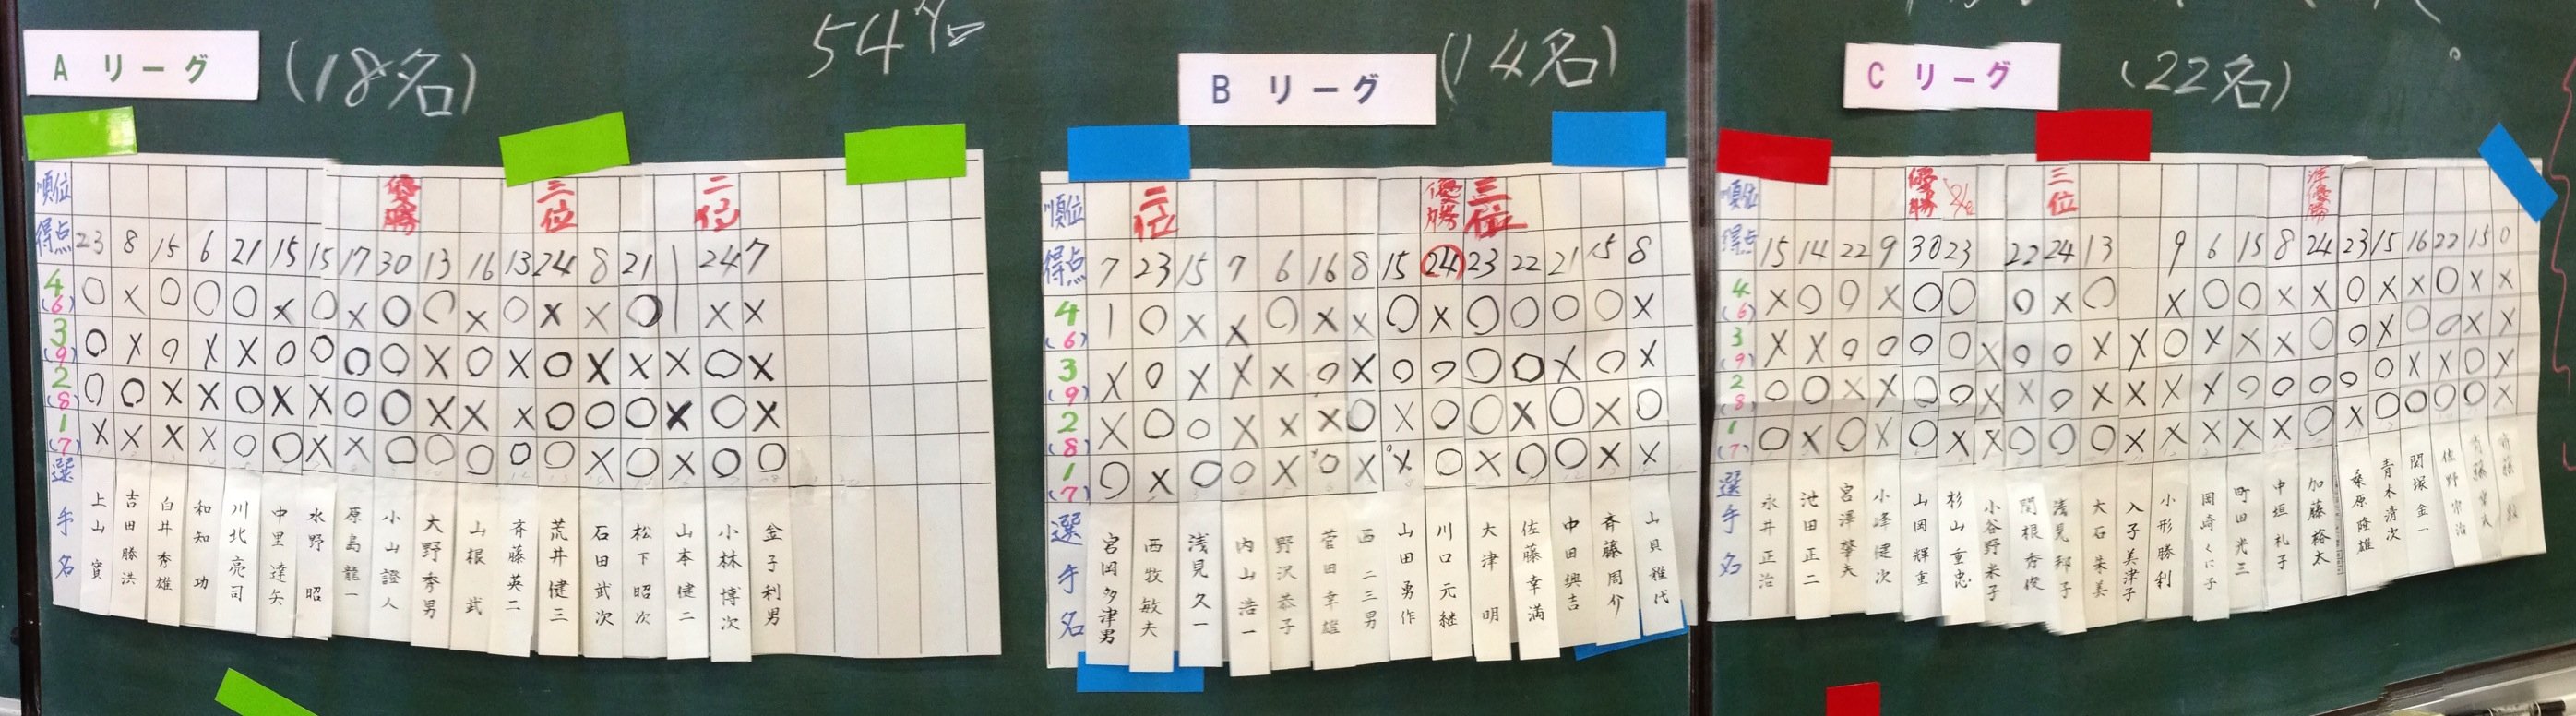 54名
A リーグ
(18名)
順位 優勝 三位 二位
得点 23 8 15 6 21 15 15 17 30 13 16 13 24 8 21 | 24 7
4 (6) ○ × ○ ○ ○ × ○ × ○ ○ × ○ × × ○ | × ×
3 (9) ○ × ○ × × ○ ○ ○ ○ × ○ × ○ × × × ○ ×
2 (8) ○ ○ × × ○ × × ○ ○ × × × ○ ○ ○ × ○ ×
1 (7) × × × × ○ ○ × × ○ ○ ○ ○ ○ × ○ × ○ ○
選手名
上山 實
吉田勝洪
白井秀雄
和知 功
川北亮司
中里達矢
水野 昭
原島龍一
小山證人
大野秀男
山根 武
斉藤英二
荒井健三
石田武次
松下昭次
山本健二
小林博次
金子利男
B リーグ
(14名)
順位 二位 優勝 三位
得点 7 23 15 7 6 16 8 15 24 23 22 21 15 8
4 (6) | ○ × × ○ × × ○ × ○ ○ ○ ○ ×
3 (9) × ○ × × × ○ × ○ ○ ○ ○ × ○ ×
2 (8) × ○ ○ × × × ○ × ○ ○ × ○ × ○
1 (7) ○ × ○ ○ × ○ × × ○ × ○ ○ × ×
選手名
宮岡多津男
西牧敏夫
浅見久一
内山浩一
野沢恭子
菅田幸雄
西 二三男
山田勇作
川口元継
大津 明
佐藤幸満
中田興吉
斉藤周介
山貝雅代
C リーグ
(22名)
順位 優勝 三位 準優勝
得点 15 14 22 9 30 23 22 24 13 9 6 15 8 24 23 15 16 22 15 0
4 (6) × ○ ○ × ○ ○ ○ × ○ × ○ ○ × × ○ × × ○ × ×
3 (9) × × ○ ○ ○ ○ × ○ ○ × × ○ × × × ○ ○ × ○ ○ × ×
2 (8) ○ ○ × × ○ ○ × × ○ × × × × ○ ○ ○ ○ ○ × × ○ ×
1 (7) ○ × ○ × ○ × × ○ ○ ○ × × × × × ○ × ○ ○ ○ ○ ×
選手名
永井正治
池田正二
宮澤肇夫
小峰健次
山岡輝重
杉山重忠
小谷野米子
関根秀俊
浅見邦子
大石朱美
入子美津子
小形勝利
岡崎くに子
町田光三
中垣礼子
加藤裕太
桑原隆雄
青木清次
関塚金一
佐野宗治